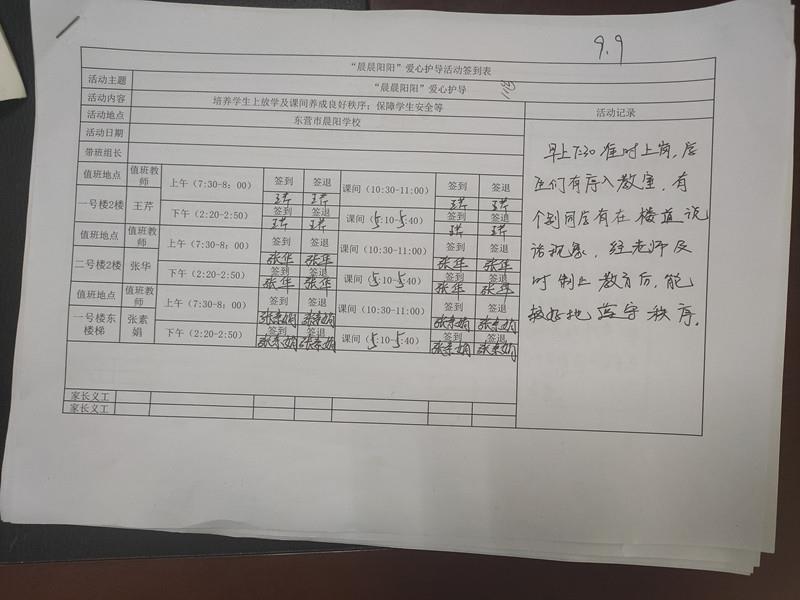 9.9
“晨晨阳阳”爱心护导活动签到表
活动主题 “晨晨阳阳”爱心护导
活动内容 培养学生上放学及课间养成良好秩序；保障学生安全等 活动记录
活动地点 东营市晨阳学校
活动日期
带班组长
值班地点 值班教师 上午（7:30-8：00） 签到 签退 课间（10:30-11:00） 签到 签退
王芹 王芹 王芹 王芹
一号楼2楼 王芹 下午（2:20-2:50） 签到 签退 课间（5:10-5:40） 签到 签退
王芹 王芹 王芹 王芹
值班地点 值班教师 上午（7:30-8：00） 签到 签退 课间（10:30-11:00） 签到 签退
张华 张华 张华 张华
二号楼2楼 张华 下午（2:20-2:50） 签到 签退 课间（5:10-5:40） 签到 签退
张华 张华 张华 张华
值班地点 值班教师 上午（7:30-8：00） 签到 签退 课间（10:30-11:00） 签到 签退
张素娟 张素娟 张素娟 张素娟
一号楼东楼梯 张素娟 下午（2:20-2:50） 签到 签退 课间（5:10-5:40） 签到 签退
张素娟 张素娟 张素娟 张素娟
家长义工
家长义工
早上7:30准时上岗，同
学们有序入教室，有
个别同学有在楼道说
话现象，经老师及
时制止教育后，能
较好地遵守秩序。